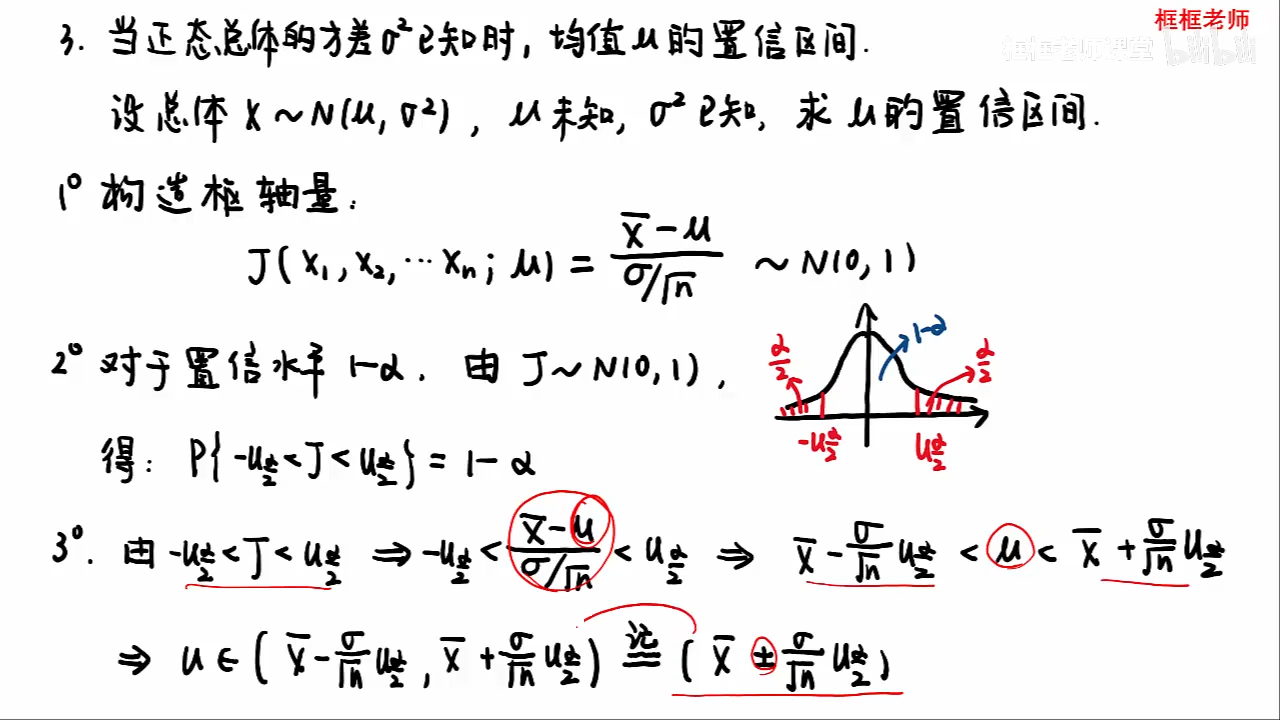 框框老师
框框老师课堂 bilibili
3. 当正态总体的方差σ²已知时, 均值μ的置信区间.
设总体 X ~ N(μ, σ²), μ未知, σ²已知, 求 μ的置信区间.
1° 构造枢轴量:
J(X₁, X₂, ⋯ Xₙ; μ) = (X̄ - μ)/(σ/√n) ~ N(0, 1)
2° 对于置信水平 1-α. 由 J ~ N(0, 1),
α/2 1-α α/2
-u_{α/2} u_{α/2}
得: P{-u_{α/2} < J < u_{α/2}} = 1 - α
3°. 由 -u_{α/2} < J < u_{α/2} ⇒ -u_{α/2} < (X̄ - μ)/(σ/√n) < u_{α/2} ⇒ X̄ - σ/√n u_{α/2} < μ < X̄ + σ/√n u_{α/2}
⇒ μ ∈ (X̄ - σ/√n u_{α/2}, X̄ + σ/√n u_{α/2}) ≝记 (X̄ ± σ/√n u_{α/2})